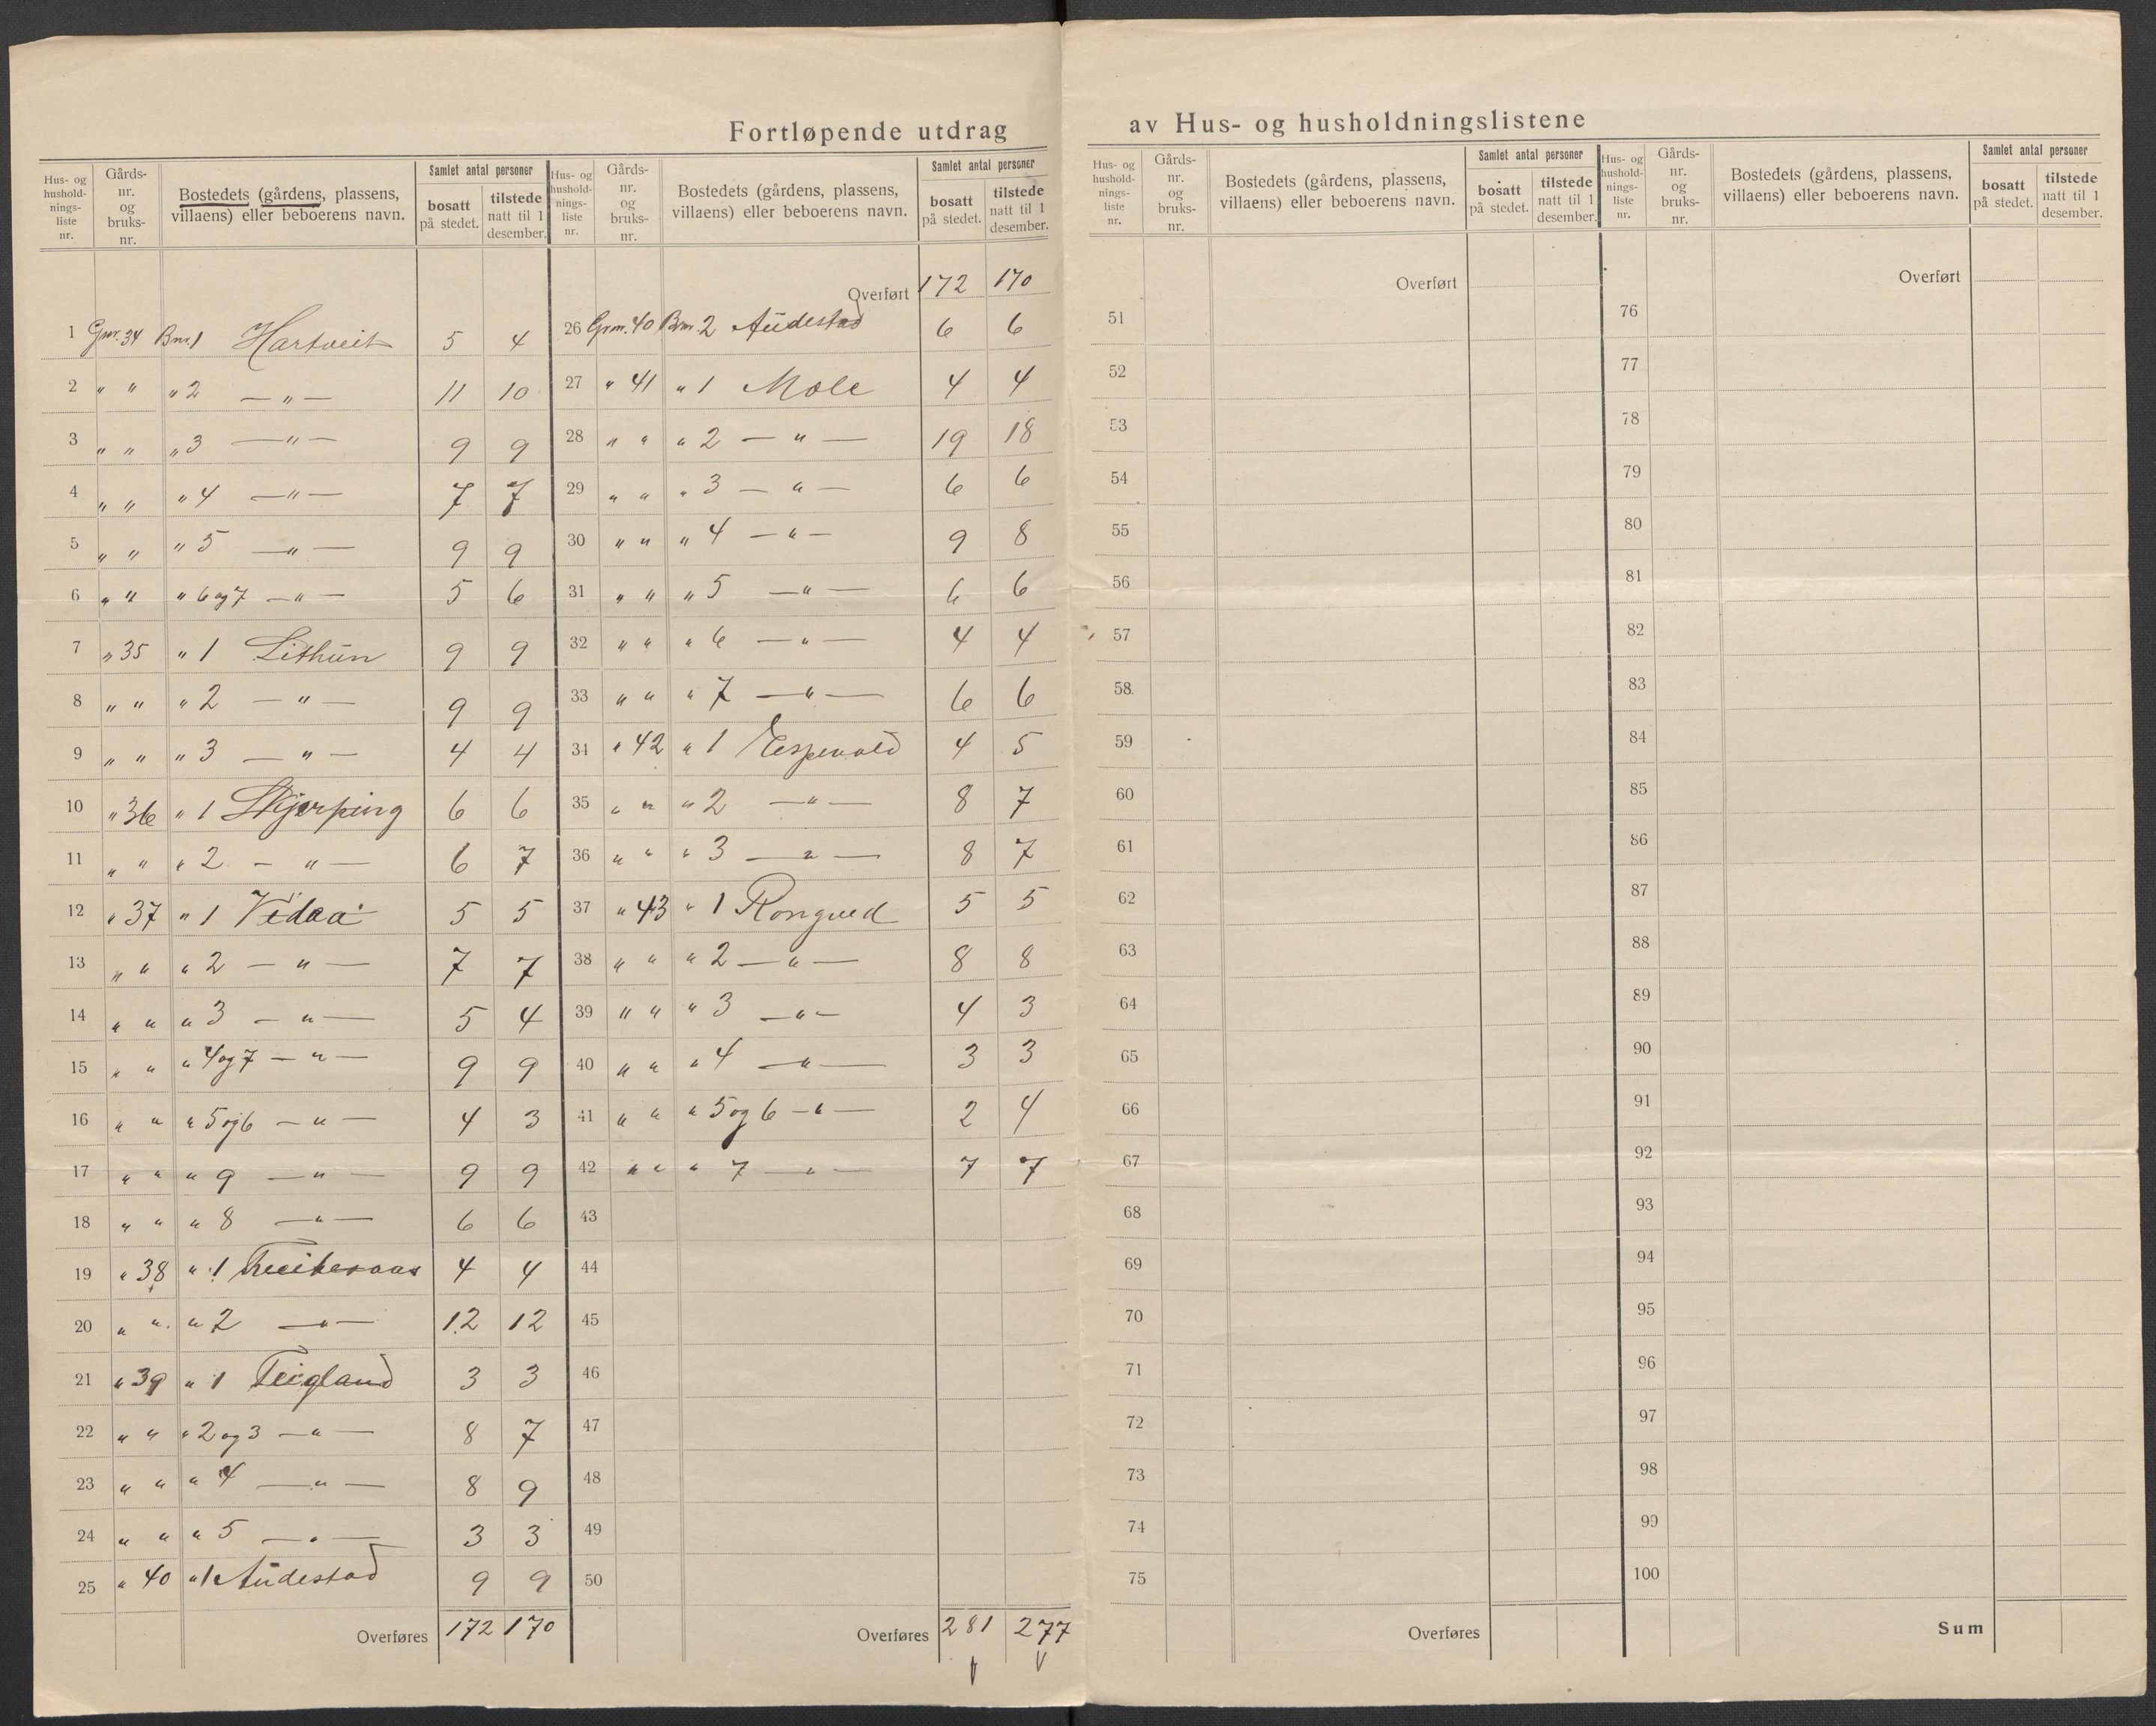 Fortløpende utdrag av Hus- og husholdningslistene
Hus- og hushold-nings-liste nr. Gårds-nr. og bruks-nr. Bostedets (gårdens, plassens, villaens) eller beboerens navn. Samlet antal personer bosatt på stedet. tilstede natt til 1 desember.
1 Gnr. 34 Bnr. 1 Hartveit 5 4
2 " " " 2 — " — 11 10
3 " " " 3 — " — 9 9
4 " " " 4 — " — 7 7
5 " " " 5 — " — 9 9
6 " " " 6 og 7 — " — 5 6
7 " 35 " 1 Lithun 9 9
8 " " " 2 — " — 9 9
9 " " " 3 — " — 4 4
10 " 36 " 1 Skjerping 6 6
11 " " " 2 — " — 6 7
12 " 37 " 1 Vedaa 5 5
13 " " " 2 — " — 7 7
14 " " " 3 — " — 5 4
15 " " " 4 og 7 — " — 9 9
16 " " " 5 og 6 — " — 4 3
17 " " " 9 — " — 9 9
18 " " " 8 — " — 6 6
19 " 38 " 1 4 4
20 " " " 2 — " — 12 12
21 " 39 " 1 Teigland 3 3
22 " " " 2 og 3 — " — 8 7
23 " " " 4 — " — 8 9
24 " " " 5 — " — 3 3
25 " 40 " 1 Audestad 9 9
Overføres 172 170
Hus- og hushold-nings-liste nr. Gårds-nr. og bruks-nr. Bostedets (gårdens, plassens, villaens) eller beboerens navn. Samlet antal personer bosatt på stedet. tilstede natt til 1 desember.
Overført 172 170
26 Gnr. 40 Bnr. 2 Audestad 6 6
27 " 41 " 1 Mæle 4 4
28 " " " 2 — " — 19 18
29 " " " 3 — " — 6 6
30 " " " 4 — " — 9 8
31 " " " 5 — " — 6 6
32 " " " 6 — " — 4 4
33 " " " 7 — " — 6 6
34 " 42 " 1 Espevold 4 5
35 " " " 2 — " — 8 7
36 " " " 3 — " — 8 7
37 " 43 " 1 Rongved 5 5
38 " " " 2 — " — 8 8
39 " " " 3 — " — 4 3
40 " " " 4 — " — 3 3
41 " " " 5 og 6 — " — 2 4
42 " " " 7 — " — 7 7
43
44
45
46
47
48
49
50
Overføres 281 277
Hus- og hushold-nings-liste nr. Gårds-nr. og bruks-nr. Bostedets (gårdens, plassens, villaens) eller beboerens navn. Samlet antal personer bosatt på stedet. tilstede natt til 1 desember.
Overført
51
52
53
54
55
56
57
58
59
60
61
62
63
64
65
66
67
68
69
70
71
72
73
74
75
Overføres
Hus- og hushold-nings-liste nr. Gårds-nr. og bruks-nr. Bostedets (gårdens, plassens, villaens) eller beboerens navn. Samlet antal personer bosatt på stedet. tilstede natt til 1 desember.
Overført
76
77
78
79
80
81
82
83
84
85
86
87
88
89
90
91
92
93
94
95
96
97
98
99
100
Sum